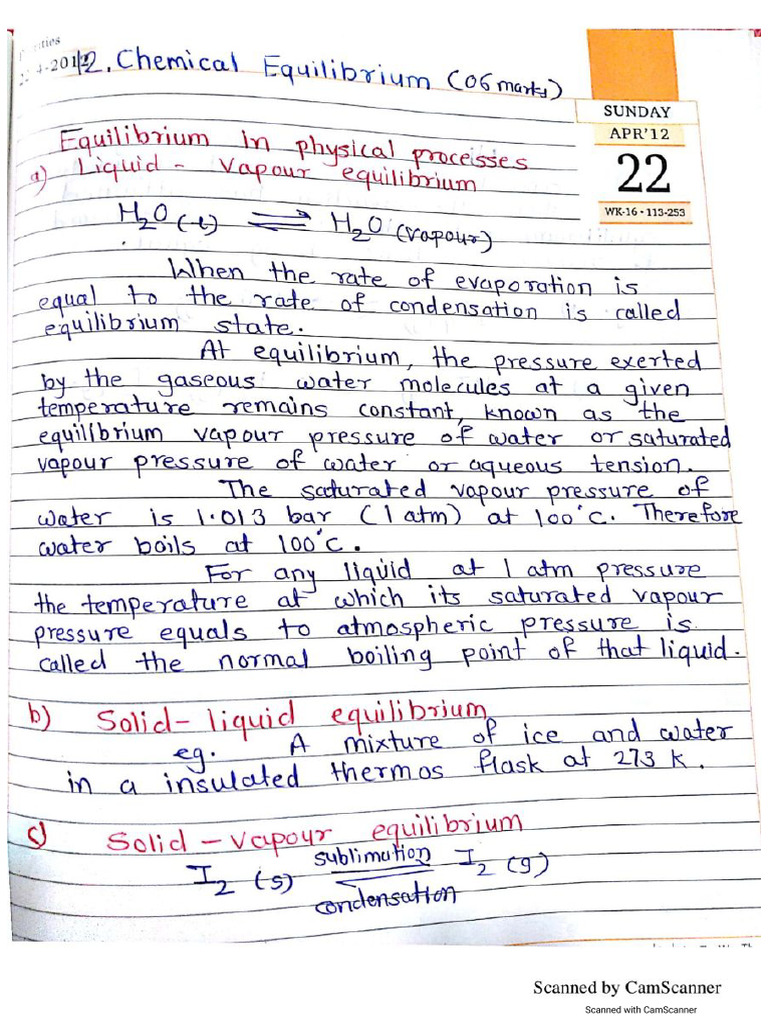 12. Chemical Equilibrium (06 marks)
SUNDAY
APR'12
22
WK-16 • 113-253
Equilibrium in physical processes
a) Liquid - Vapour equilibrium
H2O (l) ⇌ H2O (vapour)
When the rate of evaporation is
equal to the rate of condensation is called
equilibrium state.
At equilibrium, the pressure exerted
by the gaseous water molecules at a given
temperature remains constant, known as the
equilibrium vapour pressure of water or saturated
vapour pressure of water or aqueous tension.
The saturated vapour pressure of
water is 1.013 bar (1 atm) at 100°c. Therefore
water boils at 100°c.
For any liquid at 1 atm pressure
the temperature at which its saturated vapour
pressure equals to atmospheric pressure is
called the normal boiling point of that liquid.
b) Solid - liquid equilibrium
eg. A mixture of ice and water
in a insulated thermos flask at 273 K.
c) Solid - vapour equilibrium
sublimation
I2 (s) ⇌ I2 (g)
condensation
Scanned by CamScanner
Scanned with CamScanner